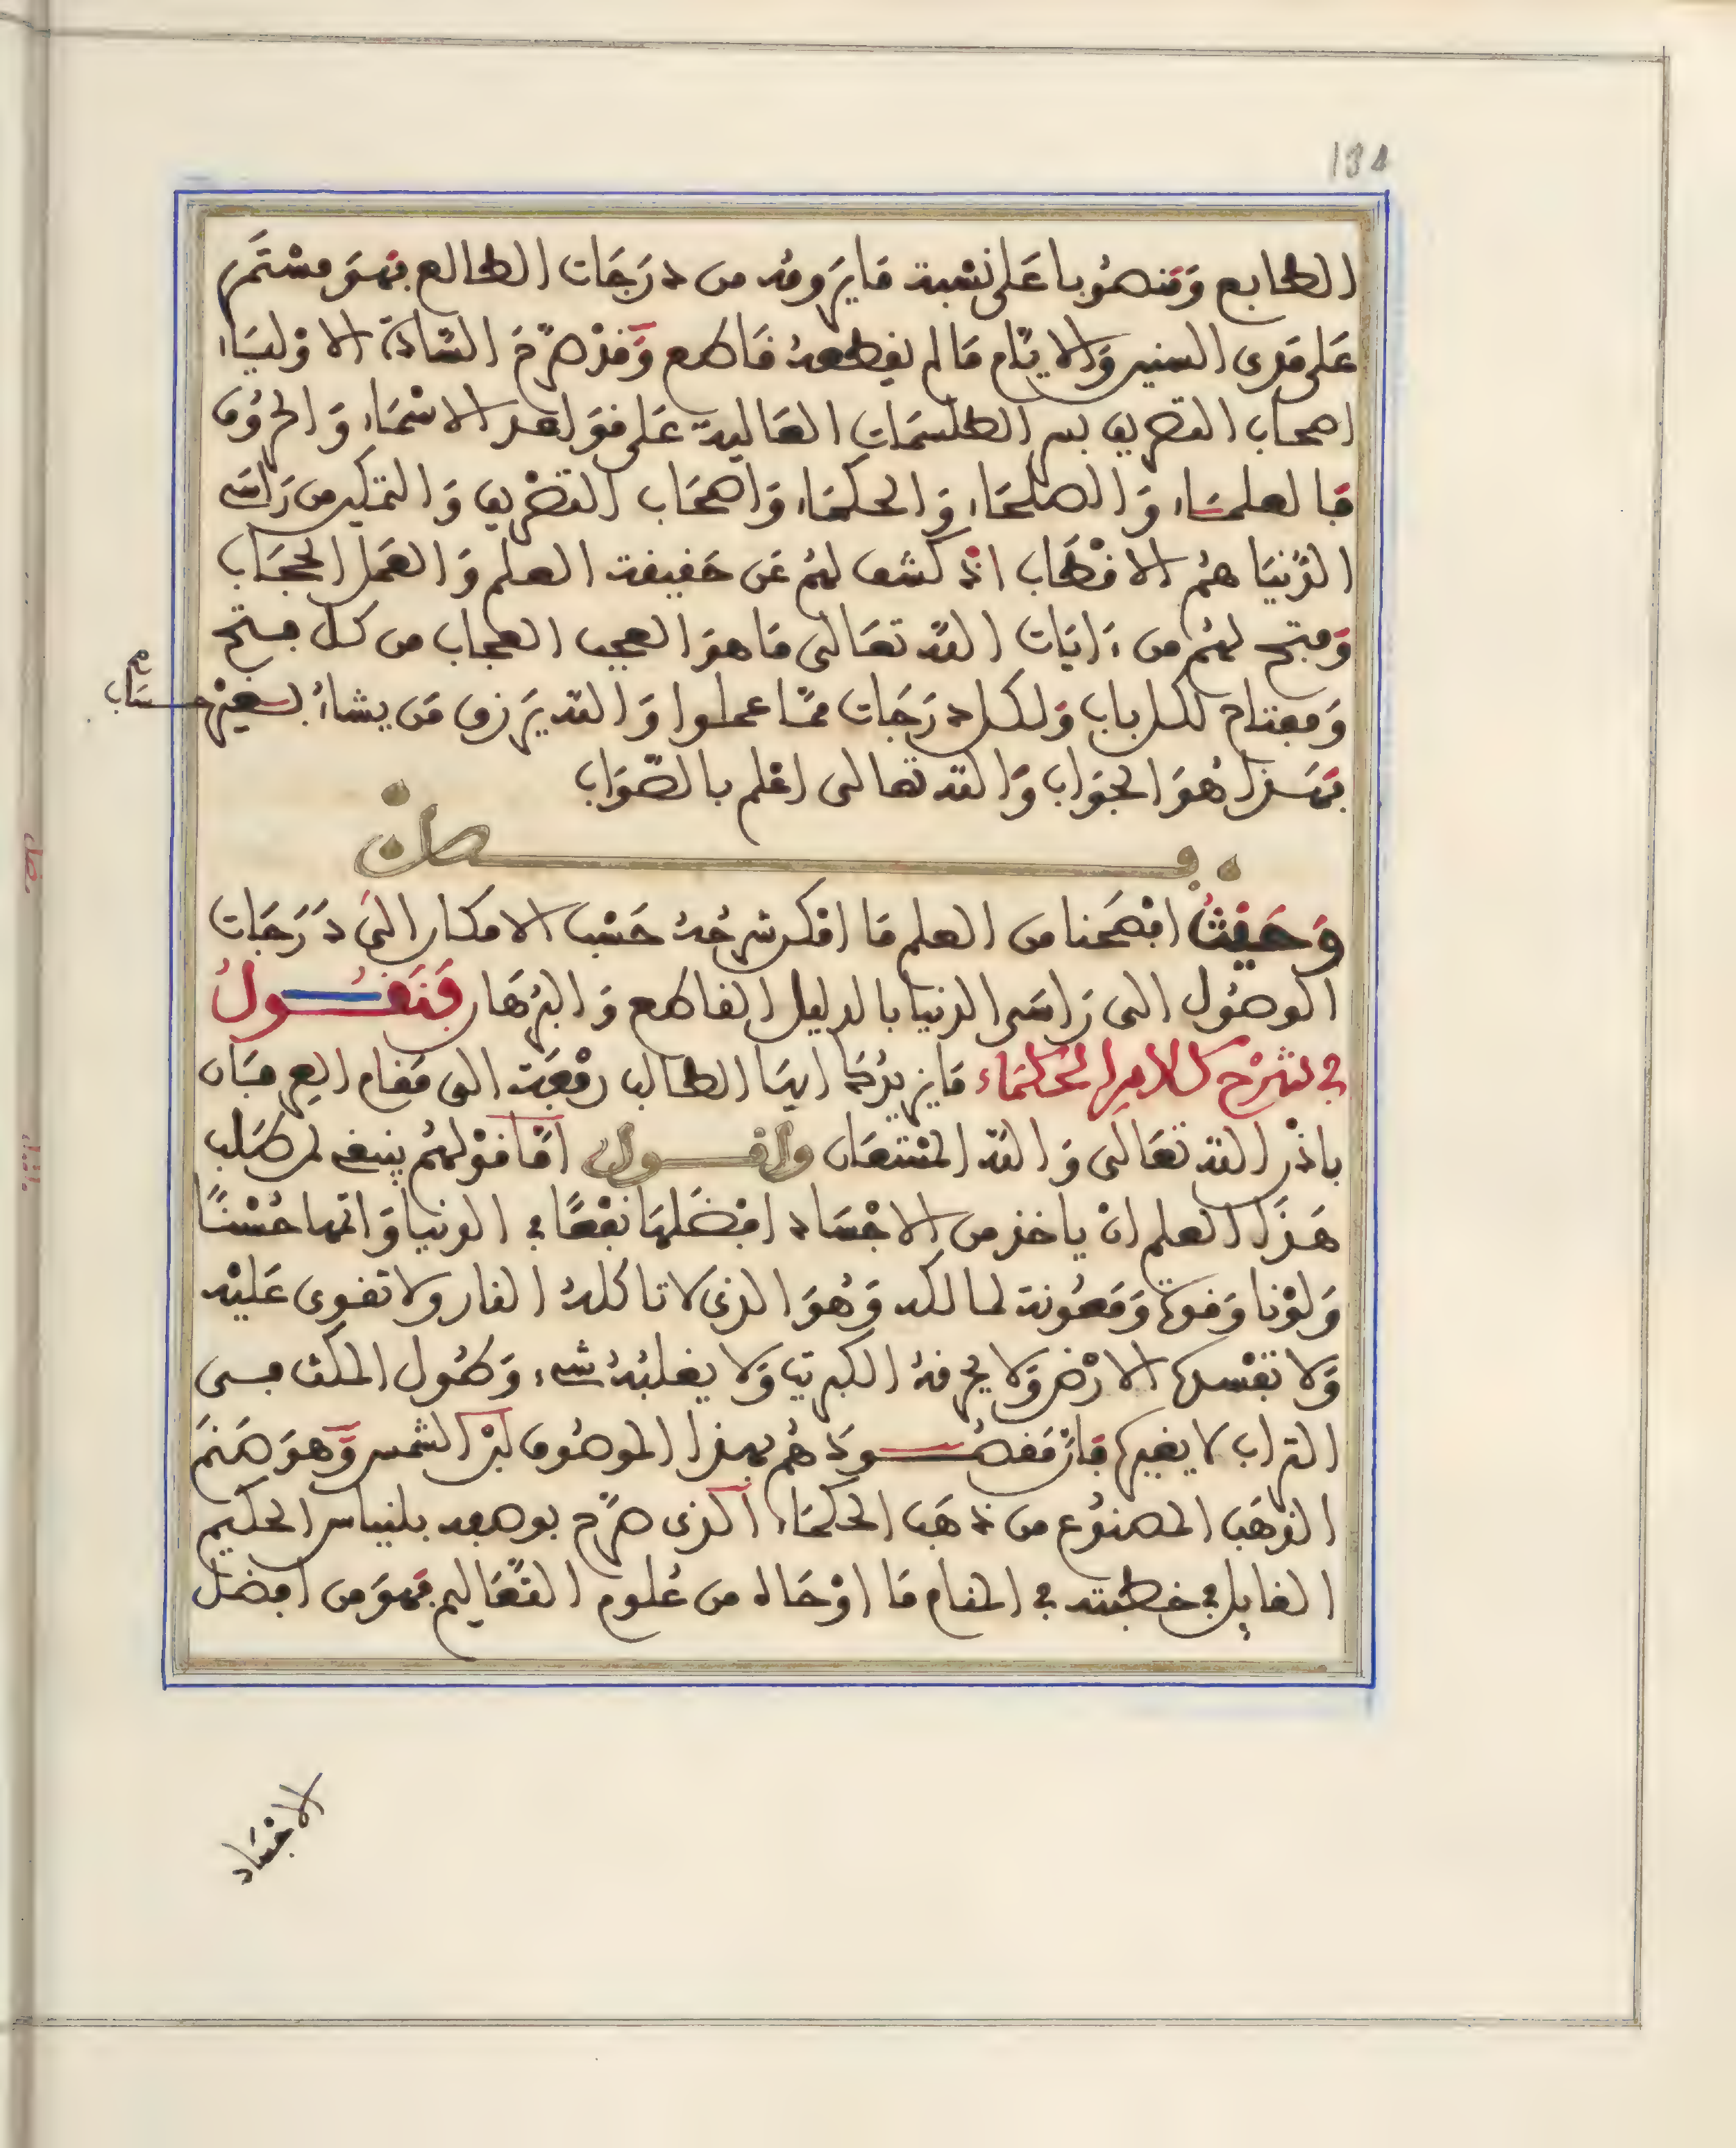 134
الطابع ومنصوبا على نسبة ما يرومه من درجات الطالع فهو مستمر
على مدى السنين والايام ما لم يقطعه قاطع وقد صرح السادة الاولياء
اصحاب التصريف بسر الطلسمات العالية على قواعد الاسماء والحروف
فالعلماء والصلحاء والحكماء واصحاب التصريف والتمكين من راس
الدنيا هم الاقطاب اذ كشف لهم عن حقيقة العلم والعمل الحجاب
وفتح لهم من ءايات الله تعالى ما هو العجب العجاب من كل فتح
ومفتاح لكل باب ولكل درجات مما عملوا والله يرزق من يشاء بغير حساب
فهذا هو الجواب والله تعالى اعلم بالصواب
فصل
وحيث افصحنا من العلم ما امكن شرحه حسب الامكان الى درجات
الوصول الى راس الدنيا بالدليل القاطع والبرهان فنقول
في شرح كلام الحكماء ما يزيدك ايها الطالب رفعة الى مقام العرفان
باذن الله تعالى والله المستعان واقول اما قولهم ينبغي لمن طلب
هذا العلم ان ياخذ من الاجساد افضلها نفعا في الدنيا واتمها حسنا
ولونا وقوة ومعونة لمالكه وهو الذي لا تاكله النار ولا تقوى عليه
ولا تفسده الارض ولا يحرقه الكبريت ولا يغلبه شيء وطول المكث في
التراب لا يغيره فان مقصودهم بهذا الموصوف لبن الشمس وهو صنم
الذهب المصنوع من ذهب الحكماء الذي صرح بوصفه بلنياس الحكيم
القايل في خطبته في المقام ما اوحاه من علوم التعاليم فهو من افضل
الاجساد